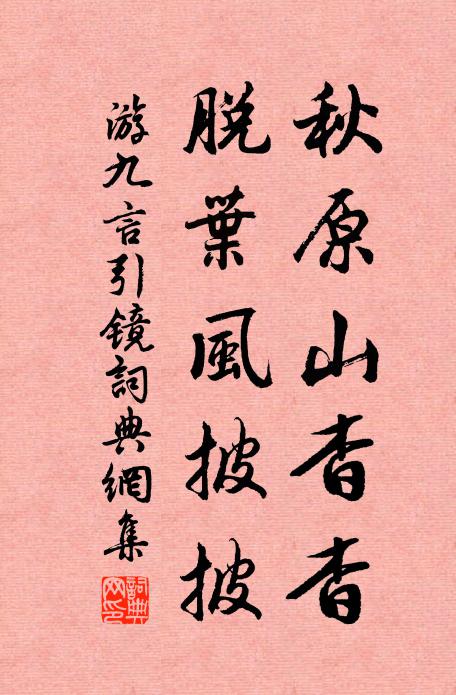 秋原山杳杳
脫葉風披披
游九言引镜詞典網集
詞典网印